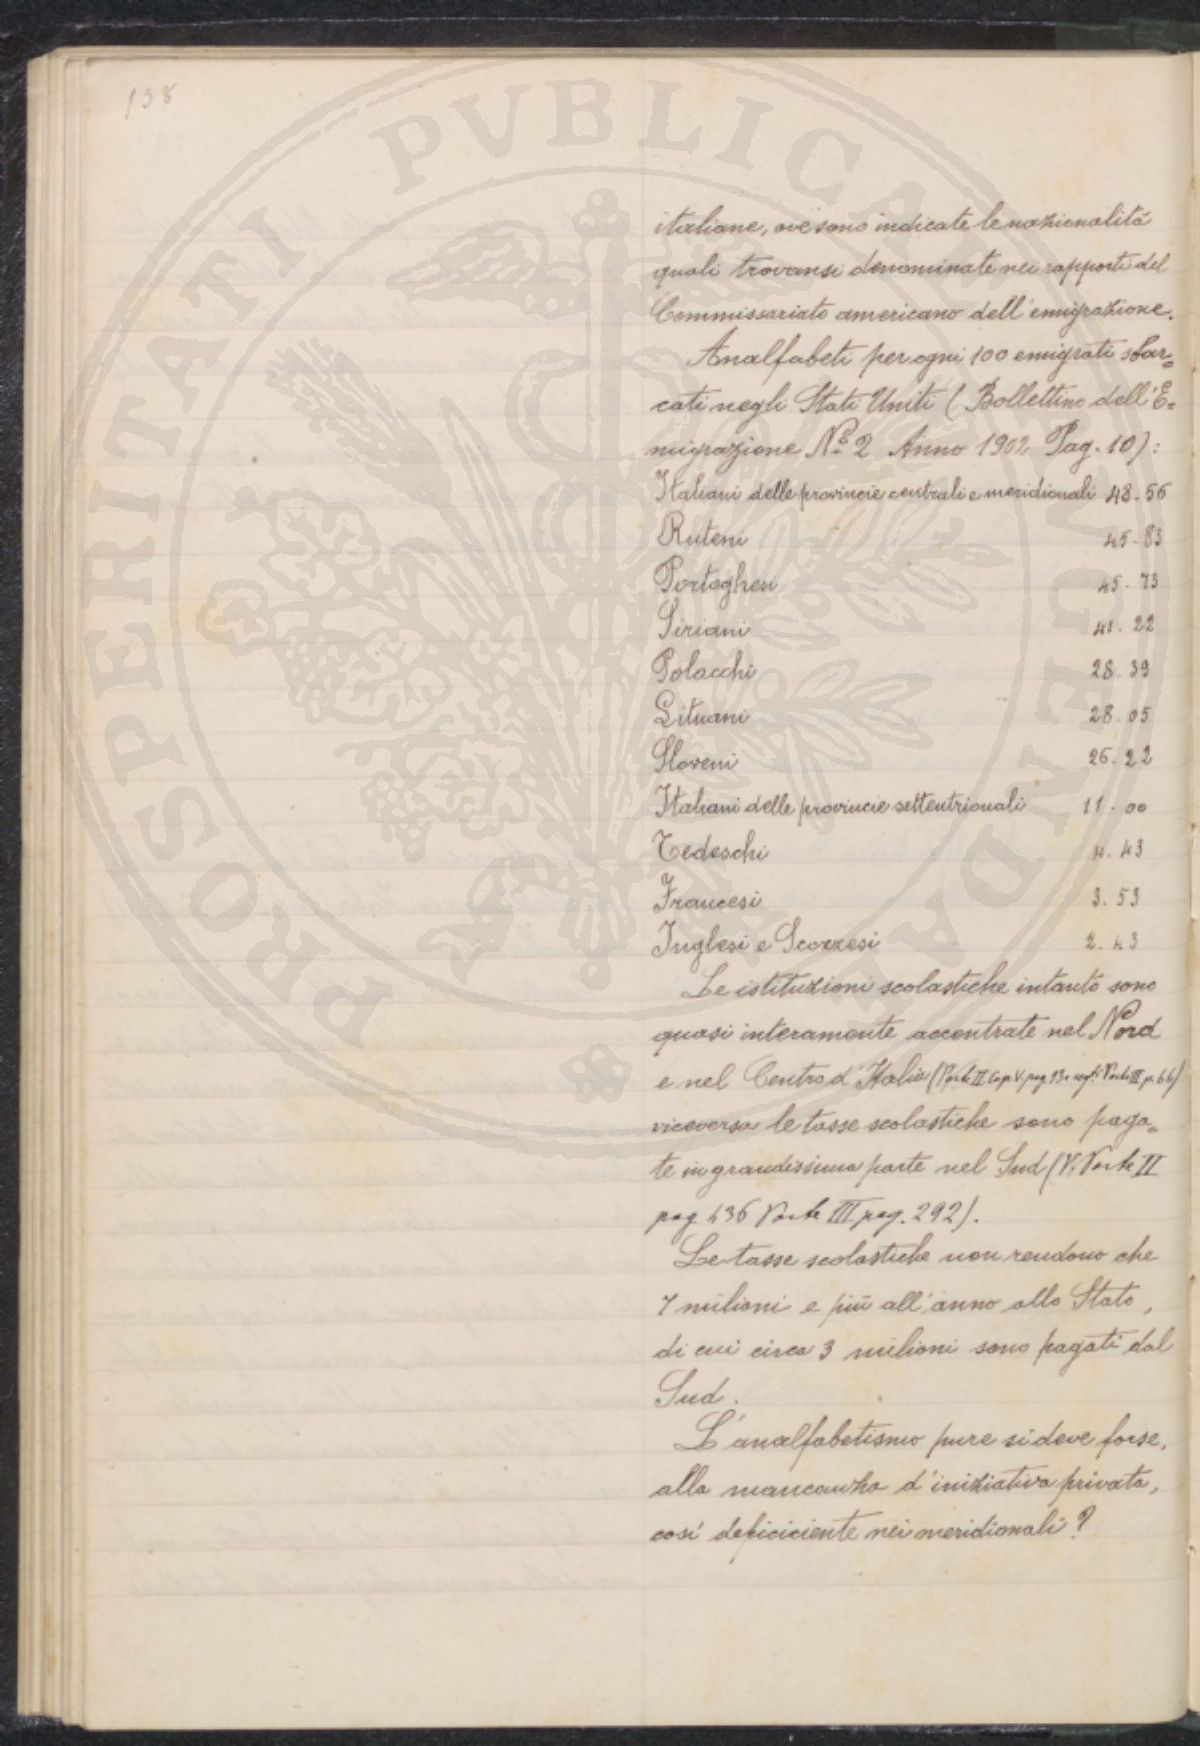 138
PROSPERITATI PUBLICAE AUGENDAE
italiane, ove sono indicate le nazionalità
quali trovansi denominate nei rapporti del
Commissariato americano dell'emigrazione.
Analfabeti per ogni 100 emigrati sbar=
cati negli Stati Uniti (Bollettino dell'E=
migrazione Nº 2 Anno 1902 Pag. 10):
Italiani delle provincie centrali e meridionali 48.56
Ruteni 45.83
Portoghesi 45.73
Siriani 41.22
Polacchi 28.39
Lituani 28.05
Sloveni 26.22
Italiani delle provincie settentrionali 11.00
Tedeschi 4.43
Francesi 3.53
Inglesi e Scozzesi 2.43
Le istituzioni scolastiche intanto sono
quasi interamente accentrate nel Nord
e nel Centro d'Italia (Parte II Cap V pag. 93 e Parte III p. 66)
viceversa le tasse scolastiche sono paga=
te in grandissima parte nel Sud (V. Parte II
pag 436 Parte III pag. 292).
Le tasse scolastiche non rendono che
7 milioni e più all'anno allo Stato,
di cui circa 3 milioni sono pagati dal
Sud.
L'analfabetismo pure si deve forse,
alla mancanza d'iniziativa privata,
così deficiciente nei meridionali?